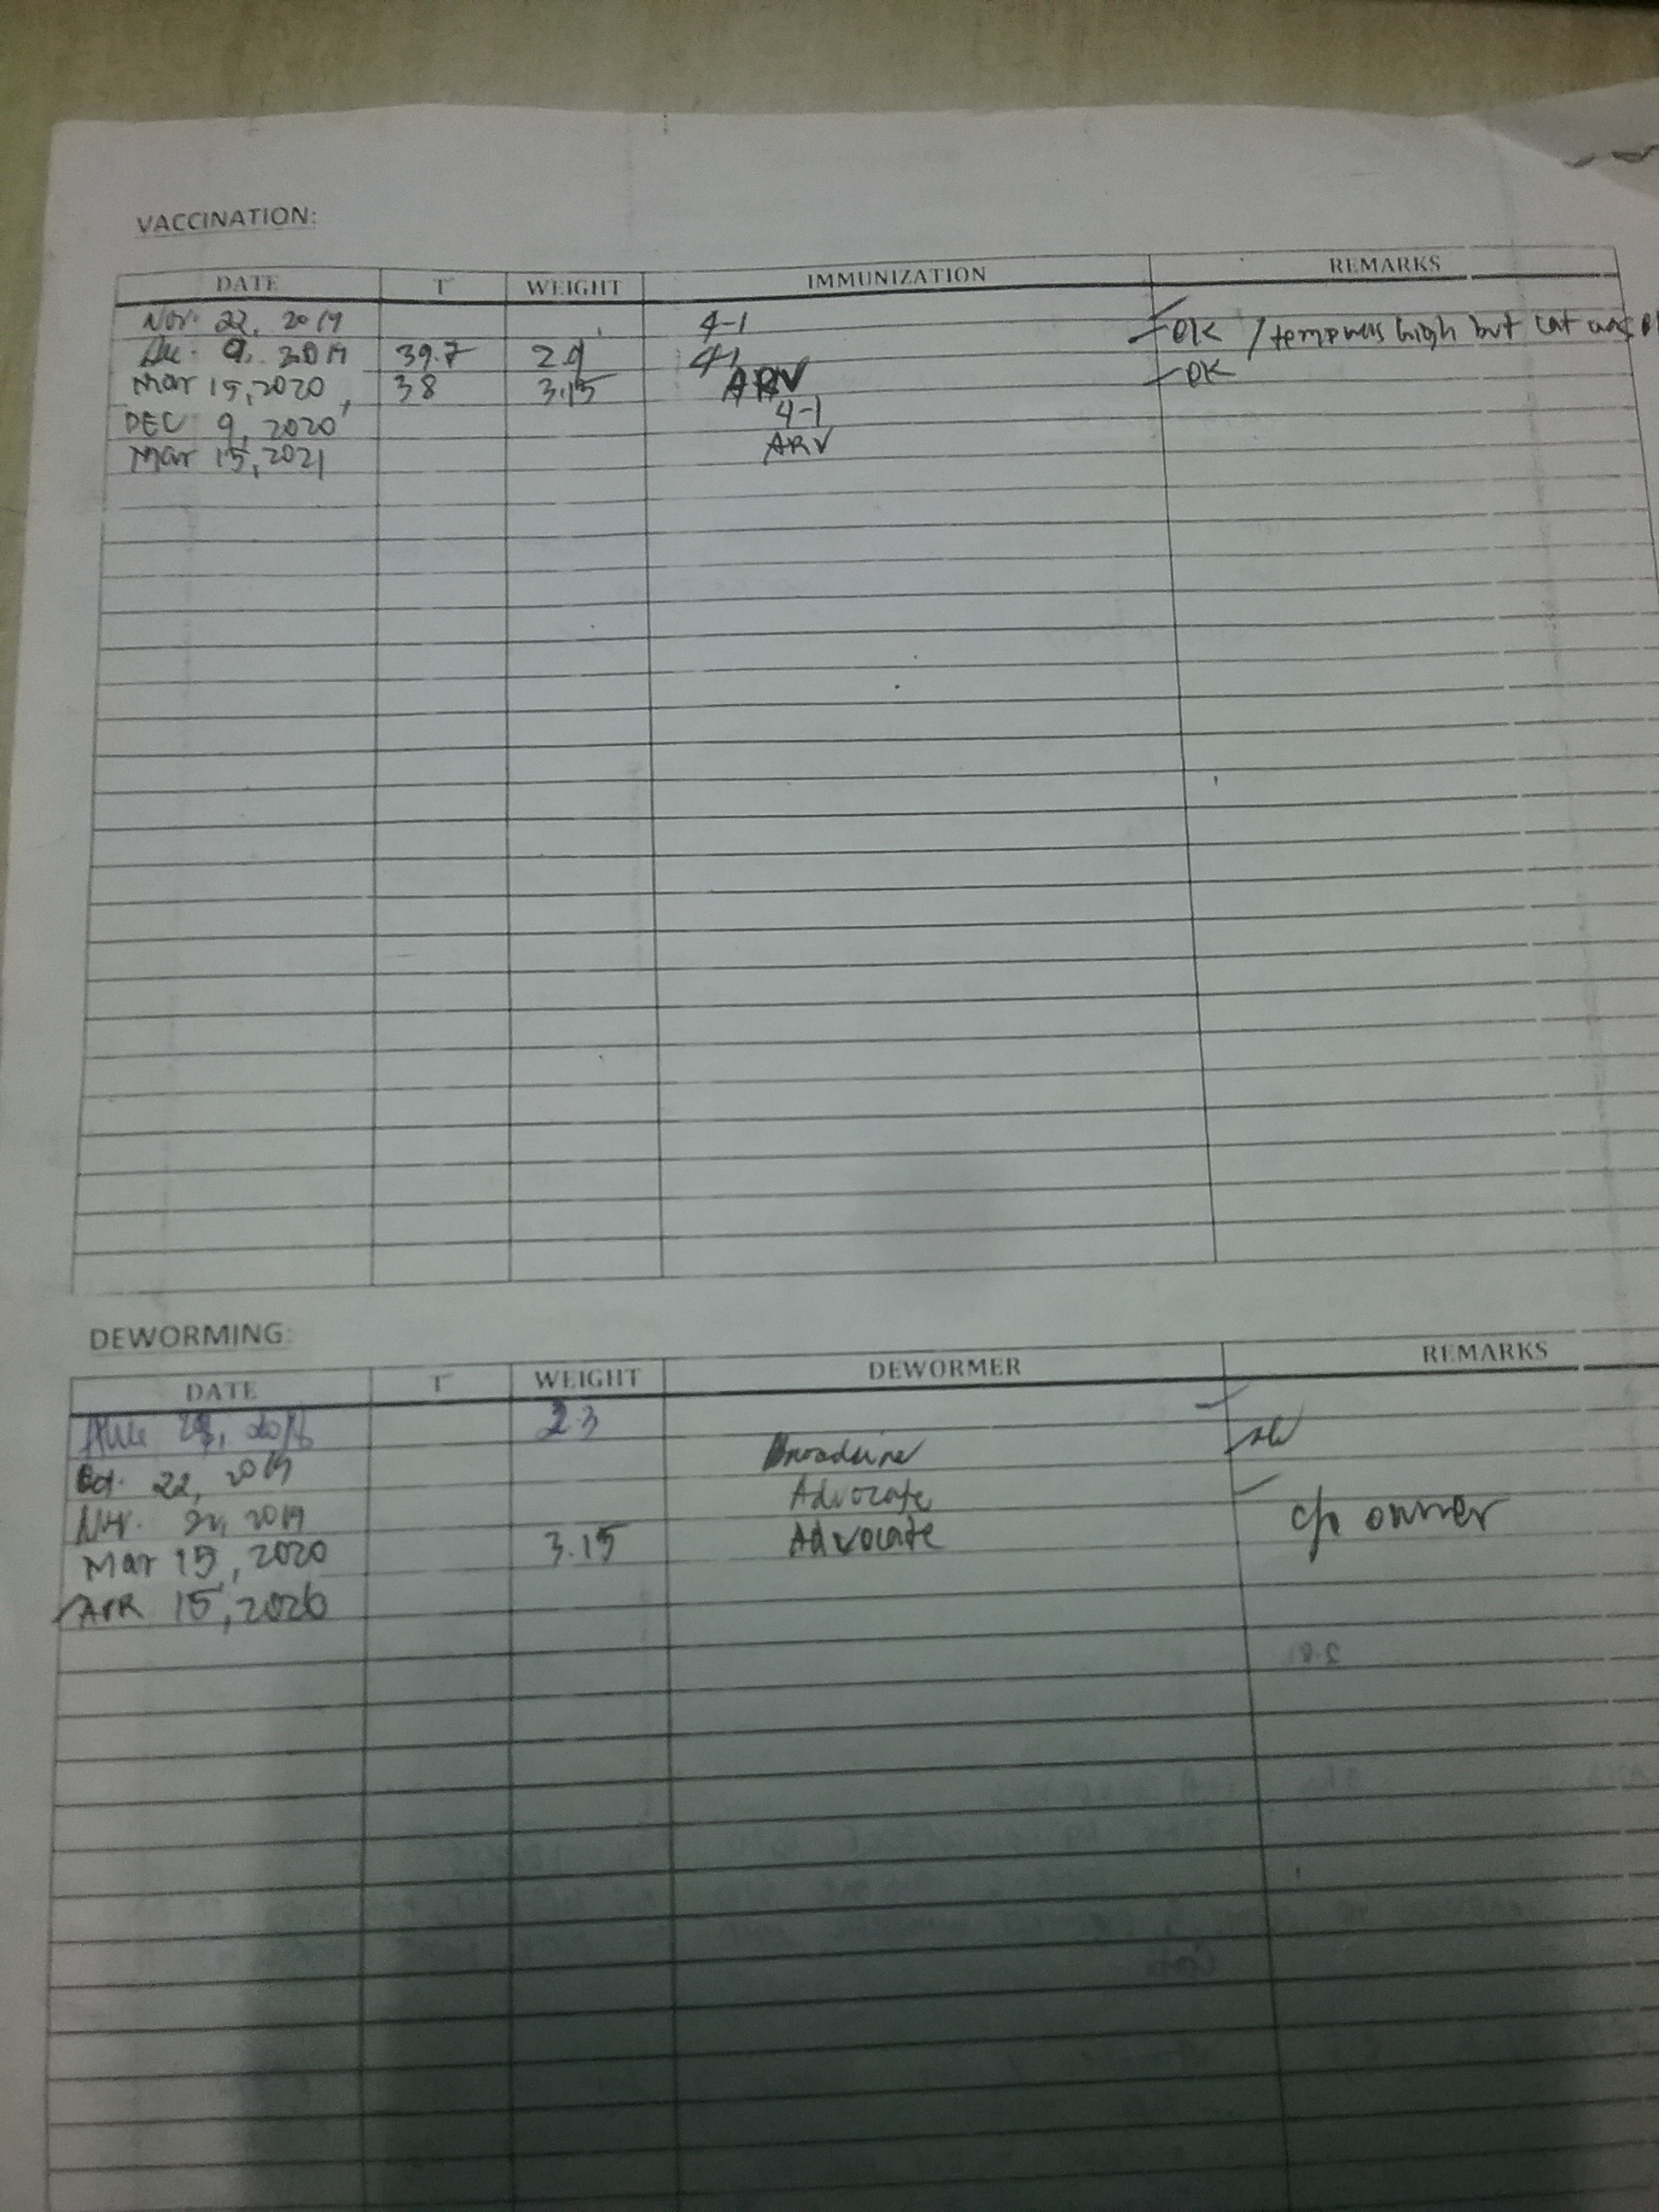 VACCINATION:
DATE T WEIGHT IMMUNIZATION REMARKS
Nov. 22, 2019 4-1
Dec. 9, 2019 39.7 2.9 4-1 OK / temp was high but cat was
Mar 15, 2020 38 3.15 ARV OK
DEC 9, 2020 4-1
Mar 15, 2021 ARV
DEWORMING:
DATE T WEIGHT DEWORMER REMARKS
2.3
Oct. 22, 2019 Broadline
Nov. 22, 2019 Advocate
Mar 15, 2020 3.15 Advocate c/o owner
APR 15, 2020